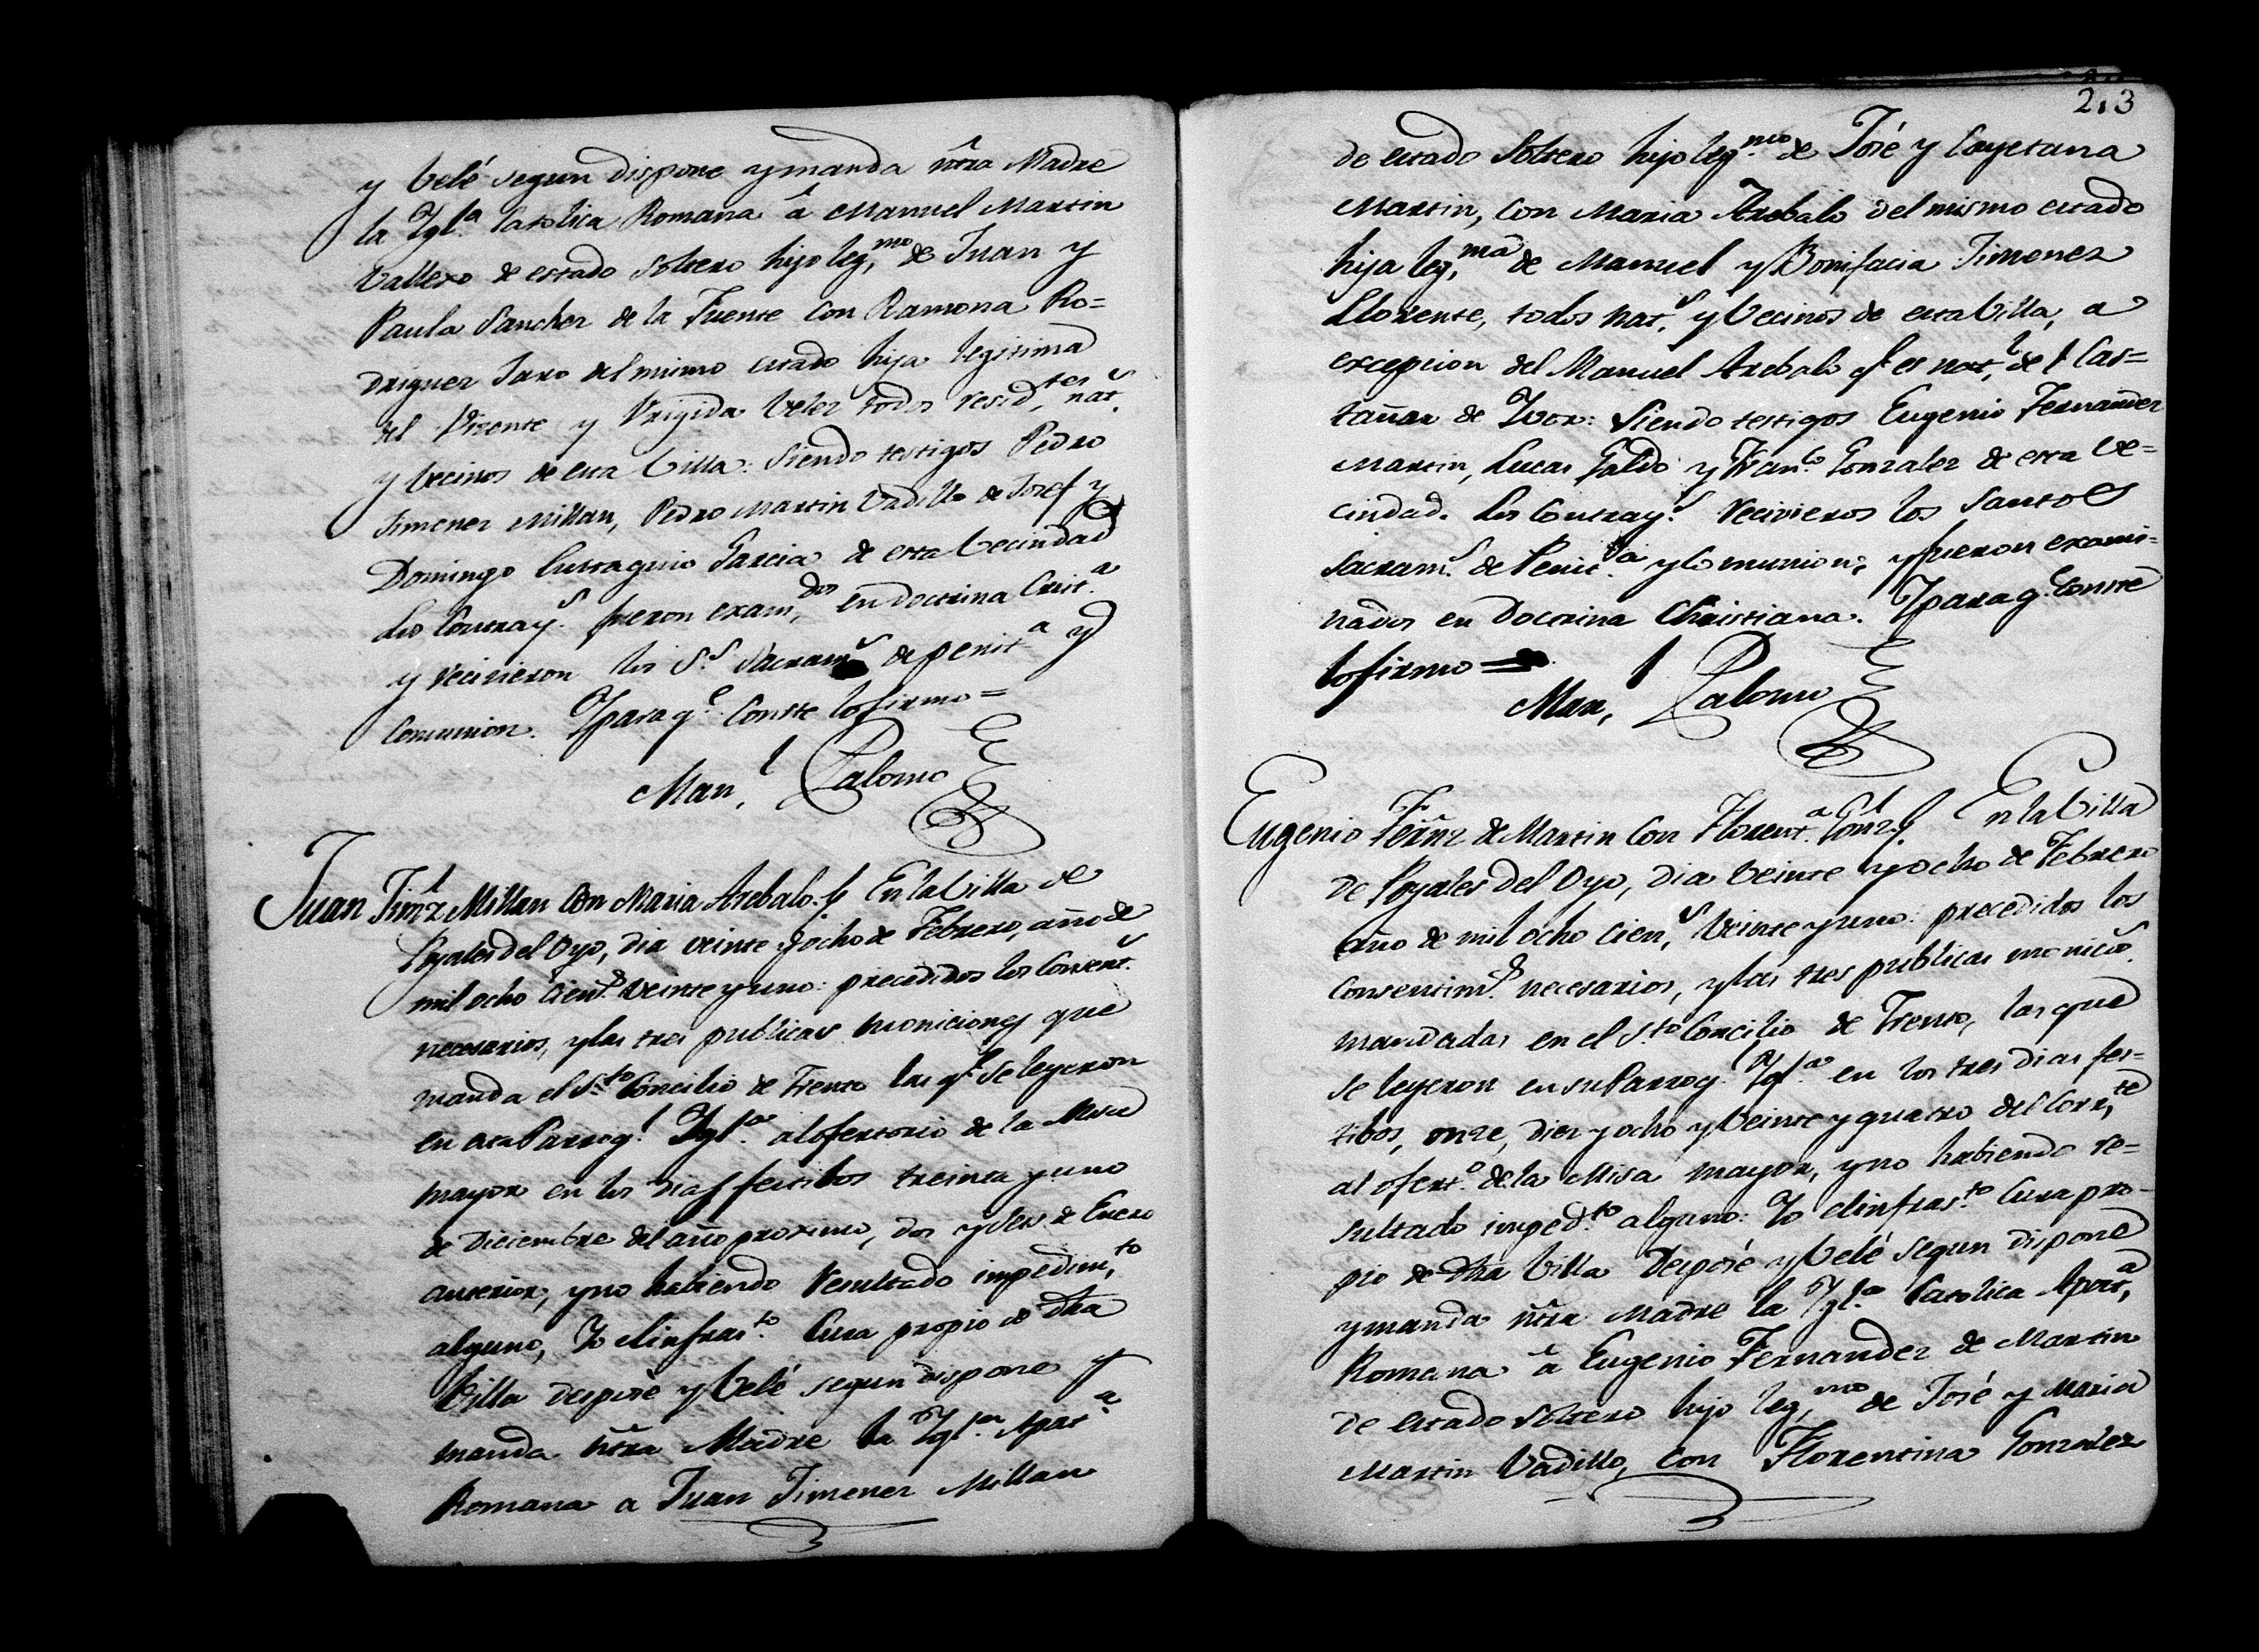 y Velé segun dispone y manda ñtra Madre
la Ygl.ª Catolica Romana â Manuel Martin
Vallexo de estado Soltero hijo leg.mo de Juan y
Paula Sanchez de la Fuente con Ramona Ro=
driguez Jaro del mismo estado hija legitima
del Vizente y Vrigida Velez todos resid.tes nat.s
y Vecinos de esta Villa: Siendo testigos Pedro
Jimenez Millan, Pedro Martin Vadillo de Josef y
Domingo Eustaquio Garcia de esta Vecindad
Los Contray.s fueron exam.dos en doctrina Crist.ª
y recivieron los S.s Sacram.s de penit.ª y
Comunion. Y para q.e Conste lo firmo =
Man.l Palomo
Juan Jimz Millan con Maria Arebalo. En la Villa de
Poyales del Oyo, dia veinte y ocho de Febrero, año de
mil ocho cien.s veinte y uno: precedidos los Consent.s
necesarios, y las tres publicas moniciones que
manda el S.to Concilio de Trento las q.e se leyeron
en esta Parroq.l Ygl.ª al ofertorio de la Misa
mayor en los dias festibos treinta y uno
de Diciembre del año proximo, dos y seis de Enero
anterior, y no habiendo resultado impedim.to
alguno, Yo el infras.to Cura propio de dha
Villa desposé y Velé segun dispone y
manda ñtra Madre la Ygl.ª Apost.ª
Romana a Juan Jimenez Millan
213
de estado Soltero hijo leg.mo de José y Cayetana
Martin, con Maria Arebalo del mismo estado
hija leg.ma de Manuel y Bonifacia Jimenez
Llorente, todos nat.s y Vecinos de esta Villa, a
excepcion del Manuel Arebalo q.e es nat.l de l Cas=
tañar de Ybor: Siendo testigos Eugenio Fernañdez
Martin, Lucas Galdo y Fran.co Gonzalez de esta Ve=
cindad. Los Contray.s recivieros los Santos
Sacram.s de Penit.ª y Comunion; y fueron exami=
nados en Doctrina Christiana. Y para q.e Conste
lo firmo =
Man.l Palomo
Eugenio Ferñz de Martin con Florent.ª Gonz.l En la Villa
de Poyales del Oyo, dia veinte y ocho de Febrero
año de mil ocho cien.s Veinte y uno: precedidos los
Consentim.s necesarios, y las tres publicas monicio.s
mandadas en el S.to Concilio de Trento, las que
se leyeron en su Parroq.l Ygl.ª en los tres dias fes=
tibos, onze, diez y ocho y Veinte y quatro del Corr.te
al ofert.º de la Misa mayor, y no habiendo re=
sultado imped.to alguno: Yo el infras.to Cura pro=
pio de dha Villa Desposé y Velé segun dispone
y manda ñtra Madre la Ygl.ª Catolica Apost.ª
Romana â Eugenio Fernandez de Martin
de estado Soltero hijo leg.mo de José y Maria
Martin Vadillo, con Florentina Gonzalez